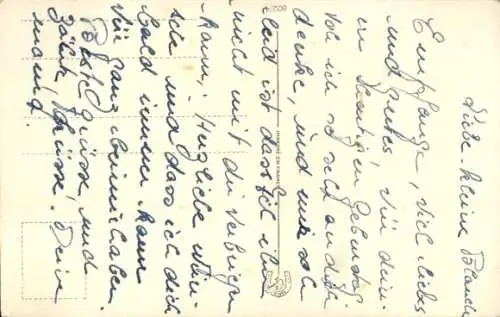 Liebe kleine Blanche
Empfange, viel liebes
und gutes für dein-
en heutigen Geburtstag
Wo ich so sehr an dich
denke, und mir so
leid ist dass ich ihn
nicht mit dir verbringen
kann, Herzliche Wün-
sche und dass ich dich
bald immer kann
für ganz beimir haben.
Beste Grüsse, und
Küsse! Dein